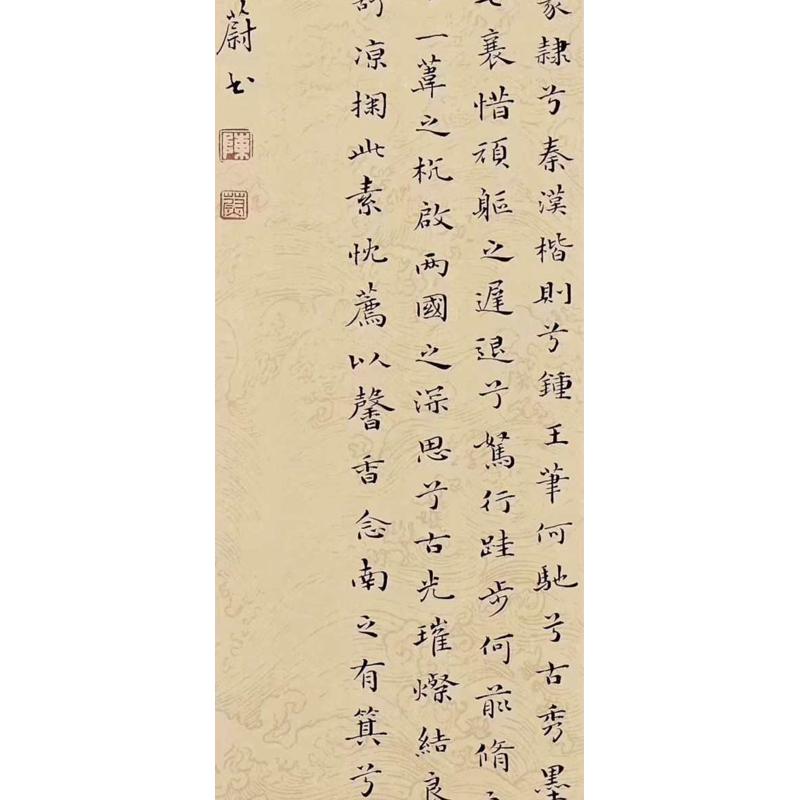 隸兮秦漢楷則兮鍾王筆何馳兮古秀墨
襄惜頑軀之遲退兮駑行跬步何前脩
一葦之杭啟兩國之深思兮古光璀燦結良
凉掬此素忱薦以馨香念南之有箕兮
蔚书